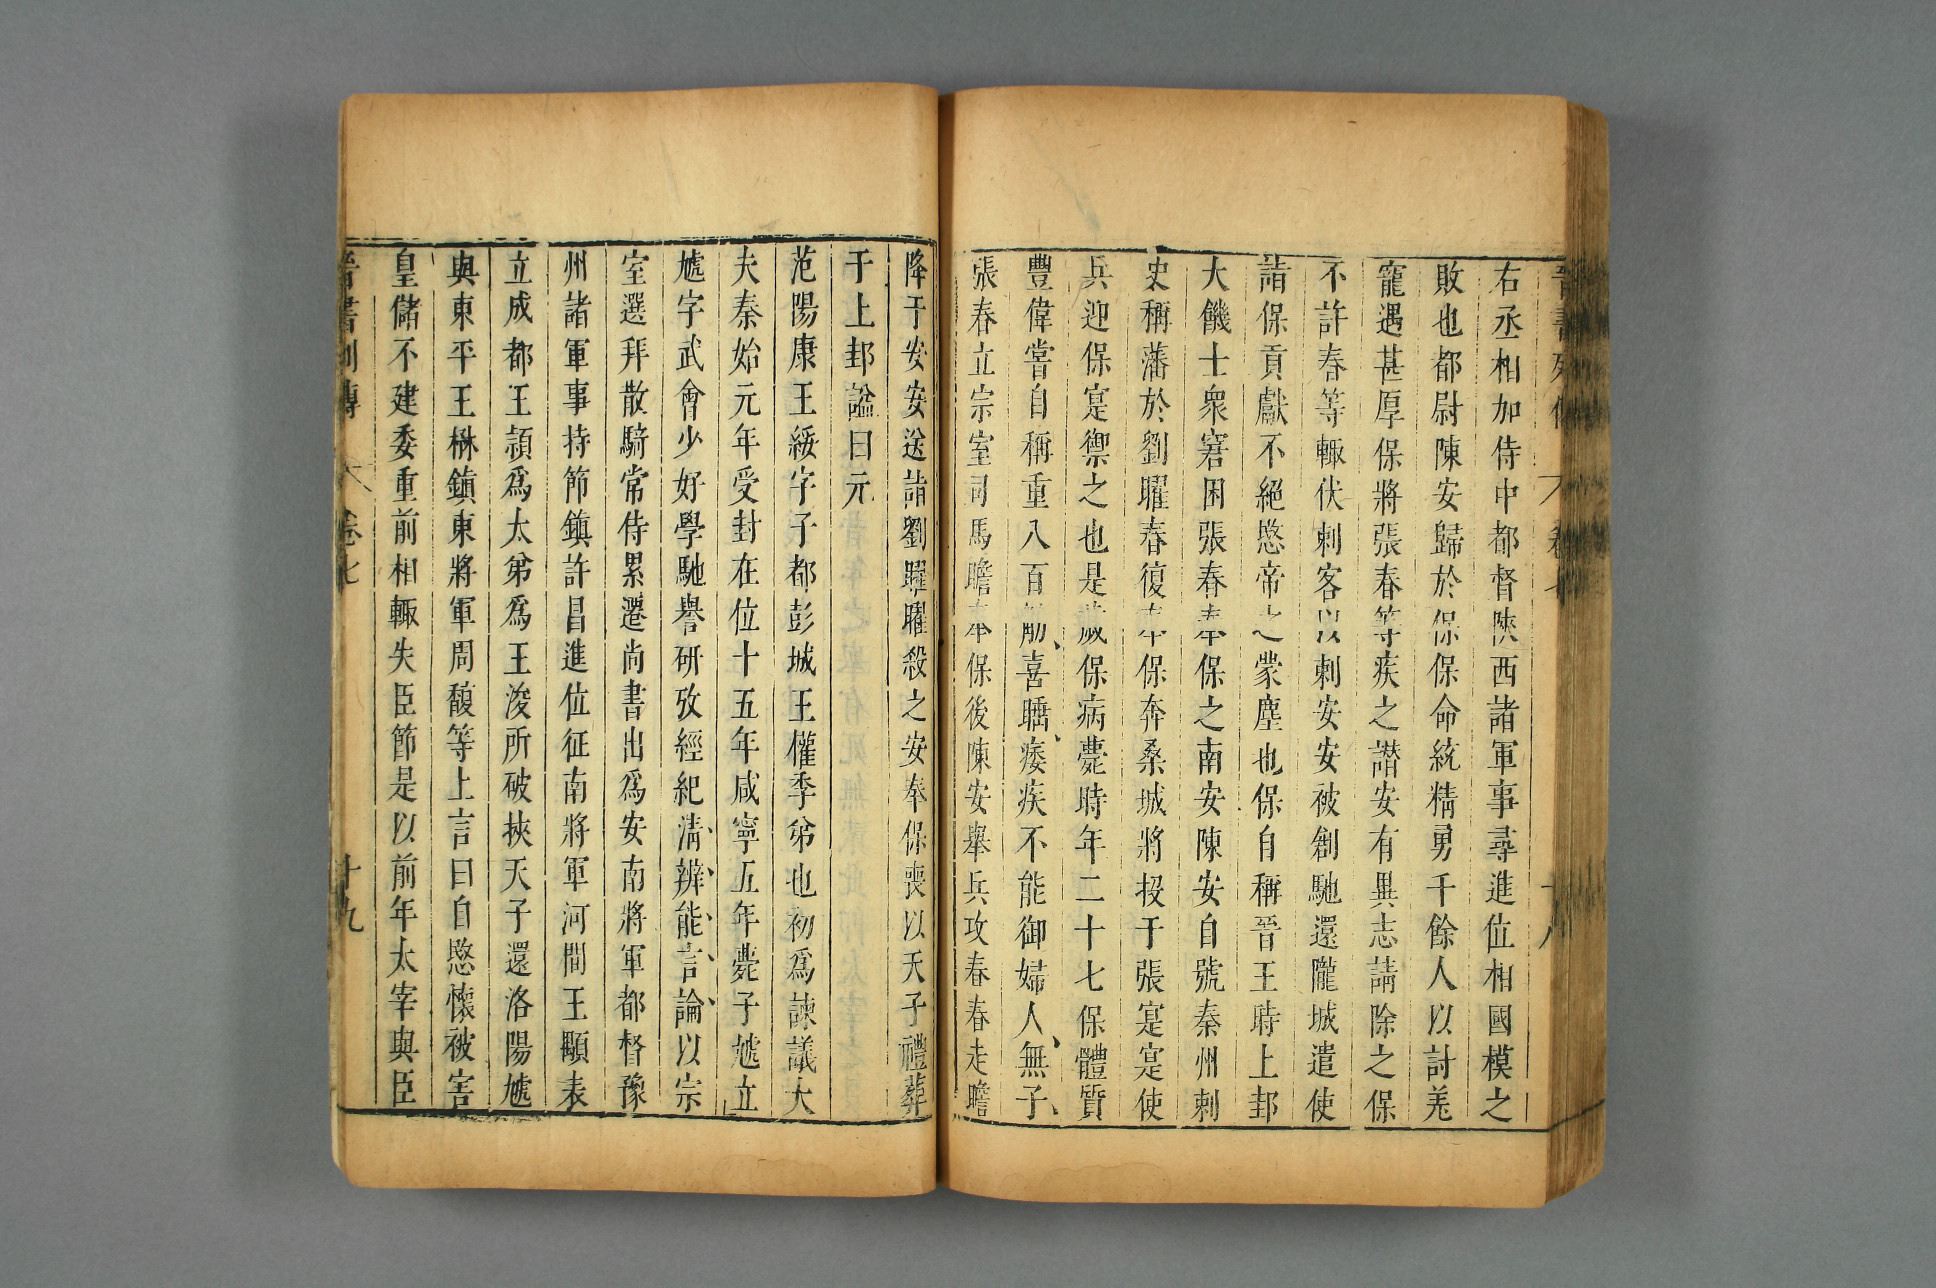 晉書列傳 卷七 十八
右丞相加侍中都督陝西諸軍事尋進位相國模之
敗也都尉陳安歸於保保命統精勇千餘人以討羌
寵遇甚厚保將張春等疾之譖安有異志請除之保
不許春等輒伏刺客以刺安安被創馳還隴城遣使
詣保貢獻不絕愍帝之蒙塵也保自稱晉王時上邽
大饑士衆窘困張春奉保之南安陳安自號秦州刺
史稱藩於劉曜春復奉保奔桑城將投于張寔寔使
兵迎保寔禦之也是歲保病薨時年二十七保體質
豐偉嘗自稱重八百觔喜睡痿疾不能御婦人無子
張春立宗室司馬瞻奉保後陳安舉兵攻春春走瞻
降于安安送詣劉曜曜殺之安奉保喪以天子禮葬
于上邽諡曰元
范陽康王綏字子都彭城王權季弟也初爲諫議大
夫泰始元年受封在位十五年咸寧五年薨子虓立
虓字武會少好學馳譽研攷經紀淸辨能言論以宗
室選拜散騎常侍累遷尚書出爲安南將軍都督豫
州諸軍事持節鎮許昌進位征南將軍河間王顒表
立成都王頴爲太弟爲王浚所破挾天子還洛陽虓
與東平王楙鎮東將軍周馥等上言曰自愍懷被害
皇儲不建委重前相輒失臣節是以前年太宰與臣
晉書列傳 卷七 十九